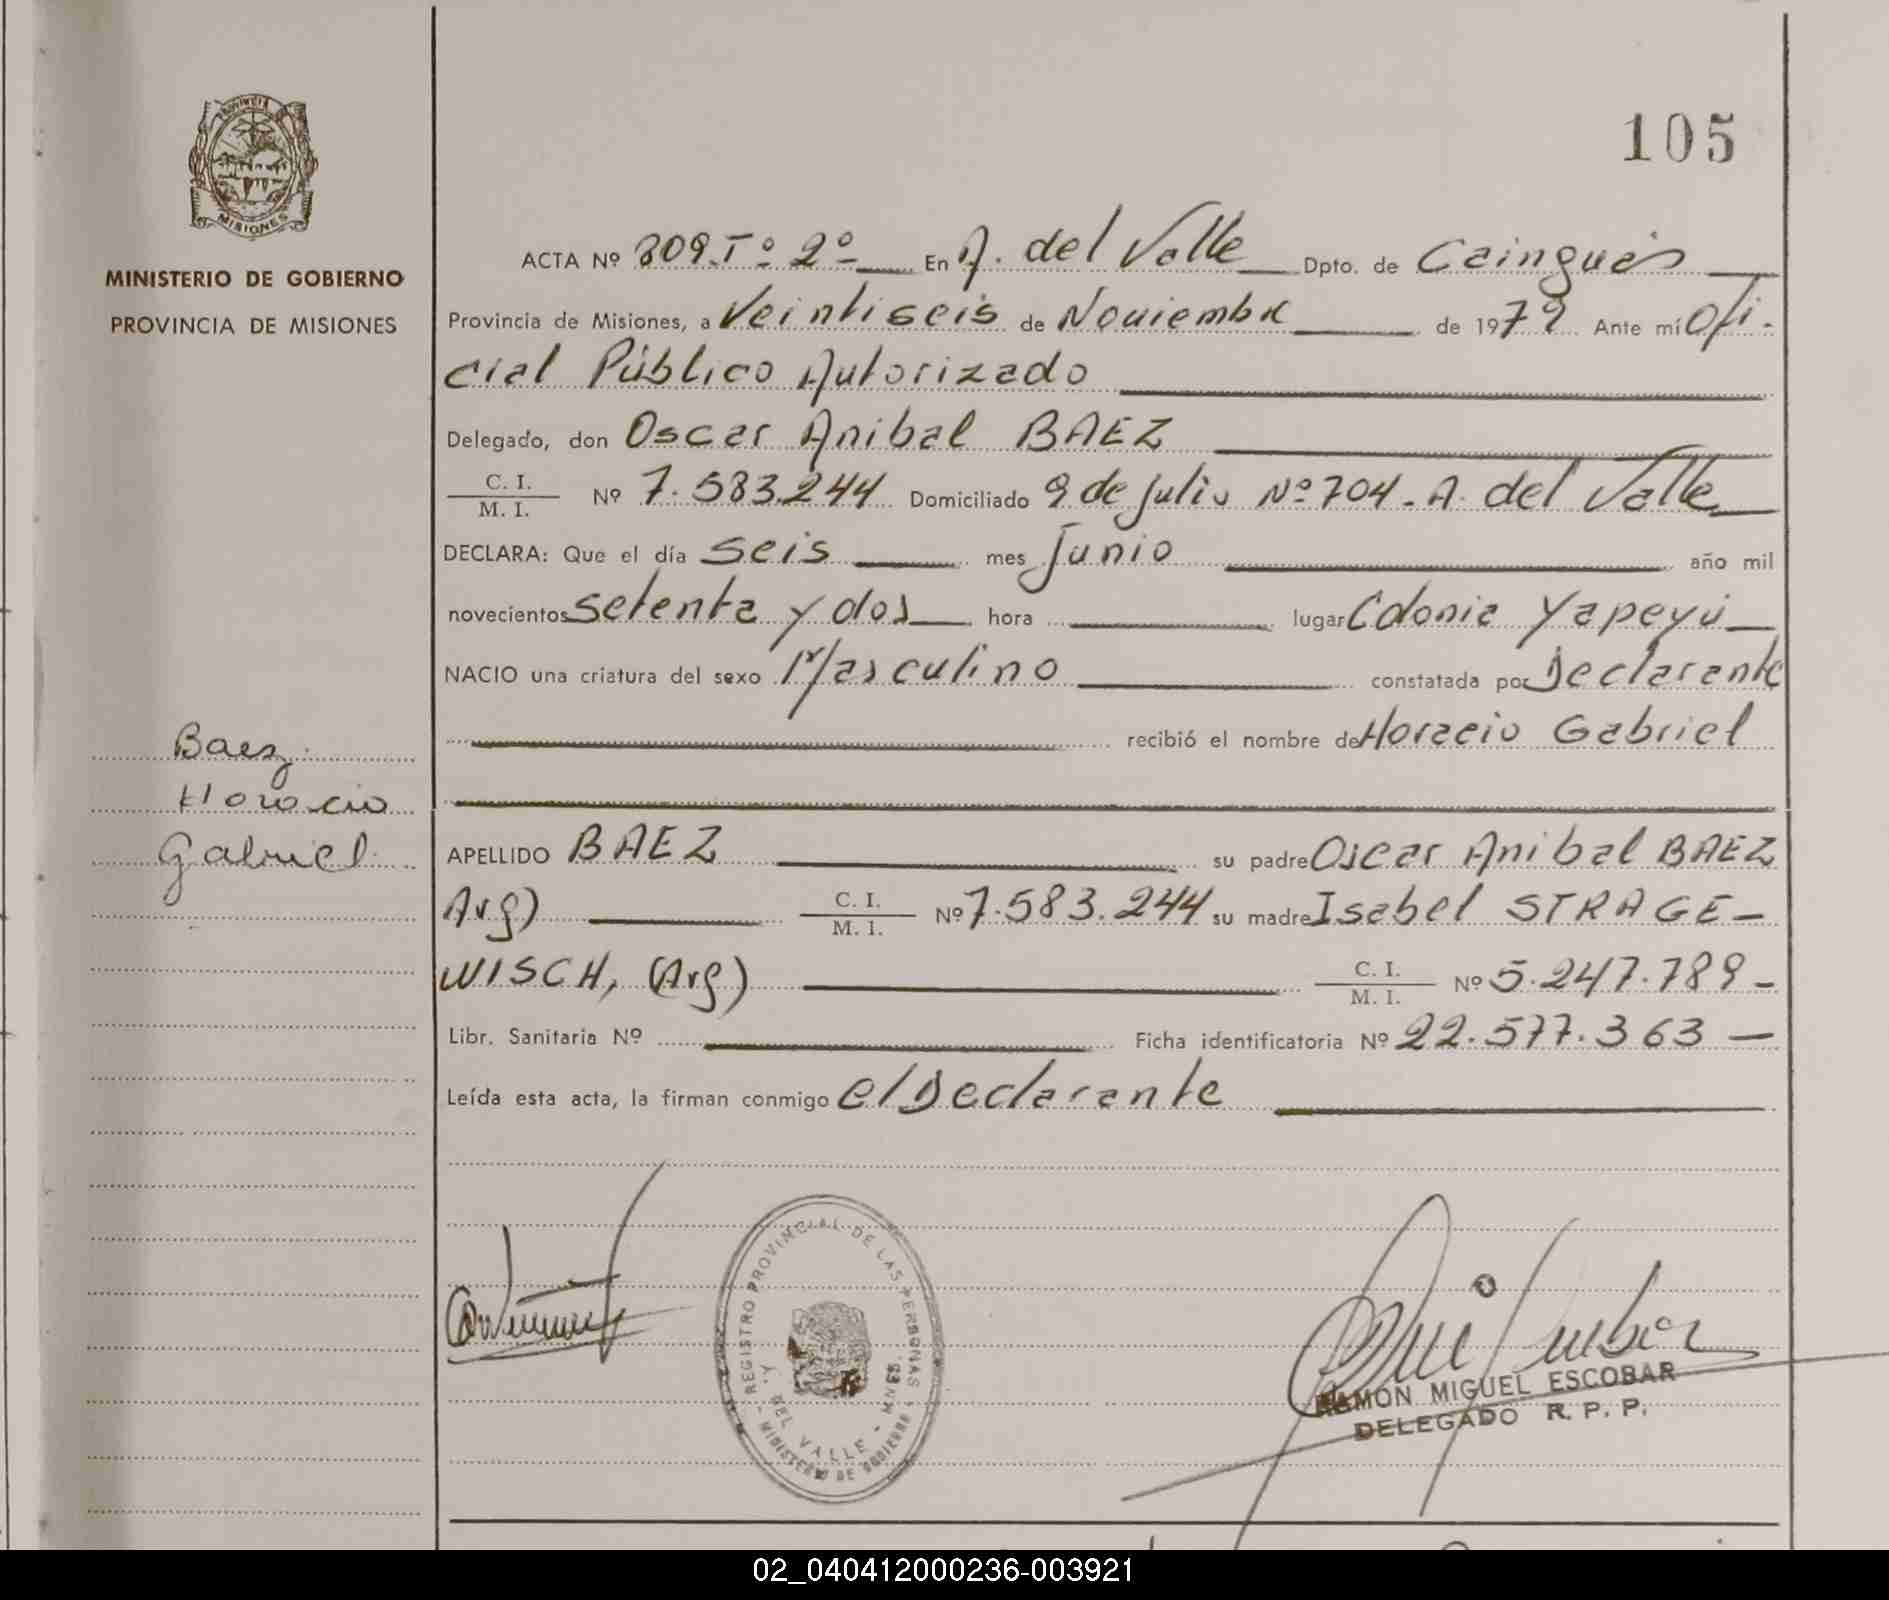 PROVINCIA
MISIONES
MINISTERIO DE GOBIERNO
PROVINCIA DE MISIONES
105
ACTA Nº 309.Tº 2º En A. del Valle Dpto. de Cainguás
Provincia de Misiones, a Veintiseis de Noviembre de 1979 Ante mí Ofi-
cial Público Autorizado
Delegado, don Oscar Anibal BAEZ
C. I.
M. I. Nº 7.583.244 Domiciliado 9 de Julio Nº 704 - A. del Valle
DECLARA: Que el día Seis mes Junio año mil
novecientos setenta y dos hora lugar Colonia Yapeyú
NACIO una criatura del sexo Masculino constatada por Declarante
recibió el nombre de Horacio Gabriel
Baez
Horacio
Gabriel
APELLIDO BAEZ su padre Oscar Anibal BAEZ
Arg) C. I.
M. I. Nº 7.583.244 su madre Isabel STRAGE-
WISCH, (Arg) C. I.
M. I. Nº 5.247.789 -
Libr. Sanitaria Nº Ficha identificatoria Nº 22.577.363 -
Leída esta acta, la firman conmigo el Declarante
REGISTRO PROVINCIAL DE LAS PERSONAS
MINISTERIO DE GOBIERNO
DEL VALLE - MNES.
RAMON MIGUEL ESCOBAR
DELEGADO R. P. P.
02_040412000236-003921